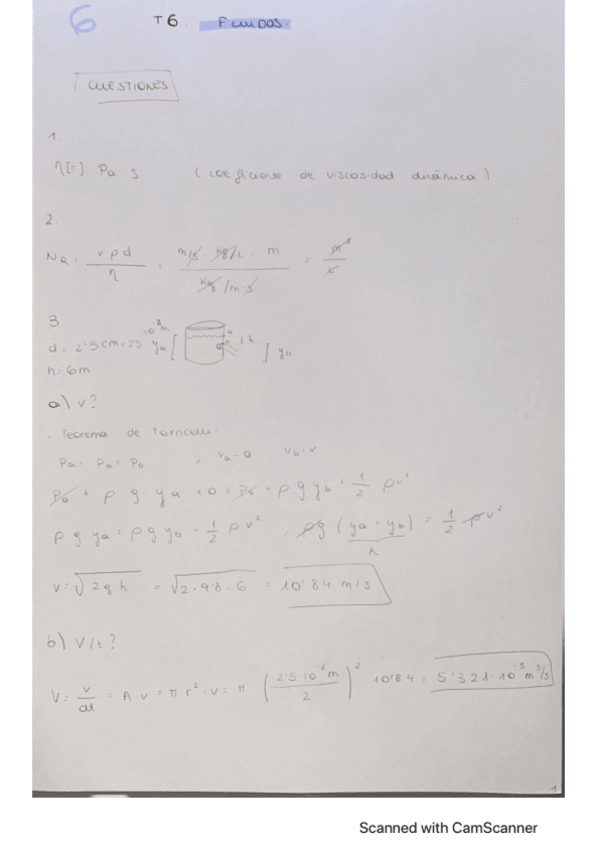 6 T6 FLUIDOS.
CUESTIONES
1.
η[=] Pa·s (coeficiente de viscosidad dinámica)
2.
N_R = vρd / η = m/s · kg/L · m / kg/m·s = m³ / L
3.
d = 2'5 cm = 2'5 · 10⁻² m y_a [ h ] y_b
h = 6m
a) v?
. Teorema de Torricelli:
P_a = P_b = P_0 , v_a = 0 v_b = v
P_0 + ρ g y_a + 0 = P_0 + ρ g y_b + 1/2 ρv²
ρ g y_a = ρ g y_b + 1/2 ρv² , ρg (y_a - y_b) = 1/2 ρv²
h
v = √2gh = √2·9'8·6 = 10'84 m/s
b) V/t?
V = v/dt = A·v = π r²·v = π (2'5·10⁻² m / 2)² · 10'84 = 5'321·10⁻³ m³/s
1
Scanned with CamScanner